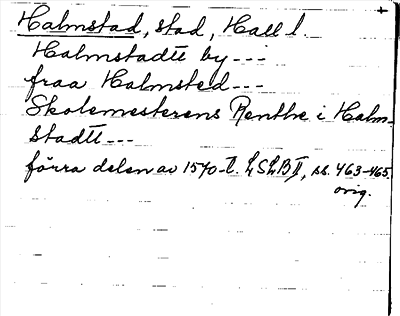 Halmstad, stad, Hall l.
Halmstadtt by ---
fraa Halmsted ---
Skolemesterens Renthe i Halm-
stadtt ---
förra delen av 1570-t. LSLB II, ss. 463-465.
orig.